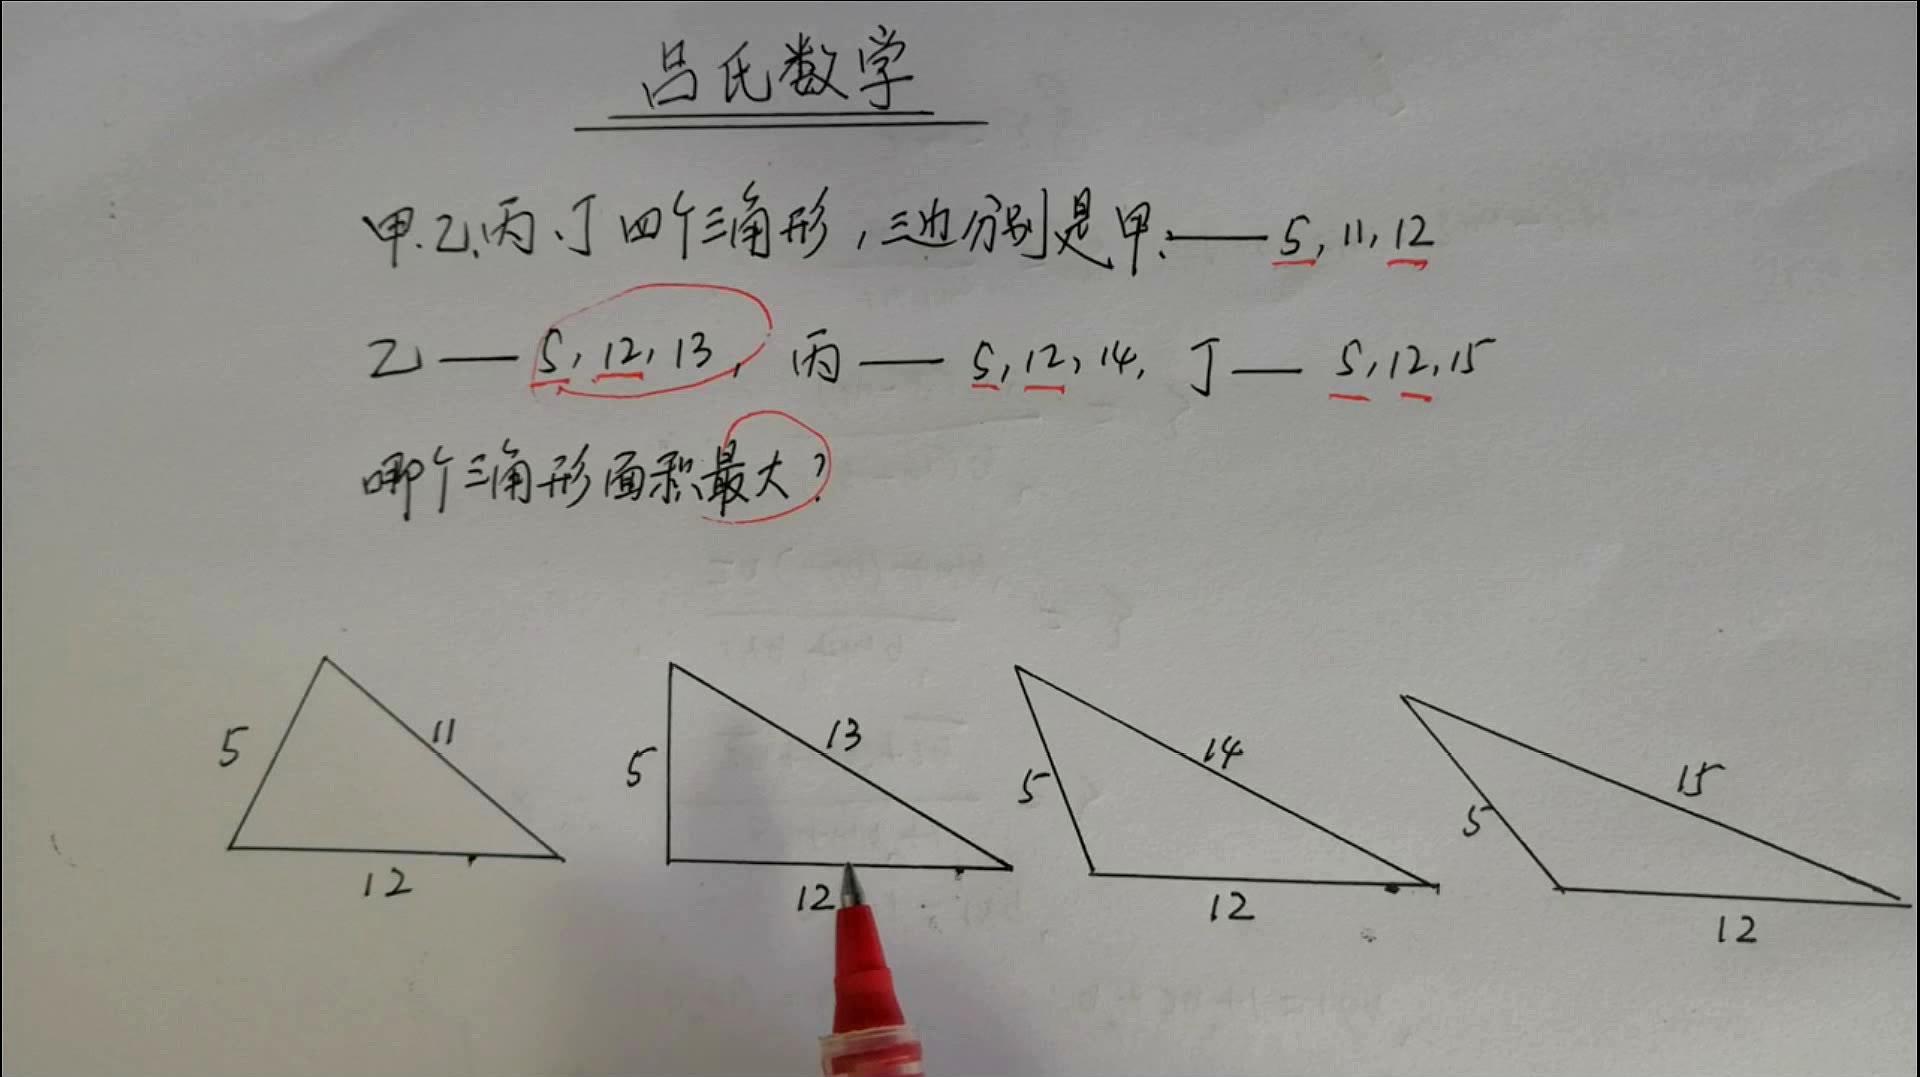 吕氏数学
甲.乙.丙.丁四个三角形,三边分别是甲.——5,11,12
乙——5,12,13,丙——5,12,14,丁——5,12,15
哪个三角形面积最大?
5 11 12
5 13 12
5 14 12
5 15 12